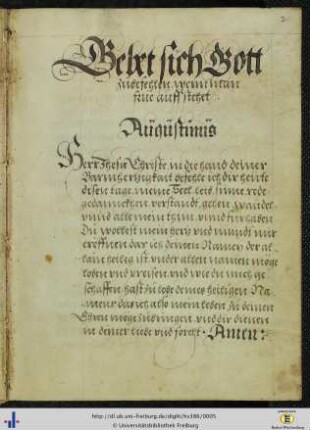 Gebet sich Gott
zubefehlen, wenn man
frue auffstehet
Augustinus
Herr Jhesu Christe in die hand deiner
Barmhertzigkait befehle ich dir heute
disen tage, meine Seel, leib, sinne, rede
gedanncken, verstandt, gehen, wandel
vnnd all mein thun, vnnd fürhaben
Du wöllest mein hertz vnd mund mir
eröffnen das ich deinen Namen der al
lain heilig ist, vnder allen namen möge
loben vnd preisen, vnd wie du mich ge
schaffen hast zu lobe deines heiligen Na
mens, das ich also mein leben zu deinen
Ehren möge zubringen, vnd dir dienen
in deiner liebe vnd forcht. Amen:
http://dl.ub.uni-freiburg.de/diglit/hs386/0005
© Universitätsbibliothek Freiburg